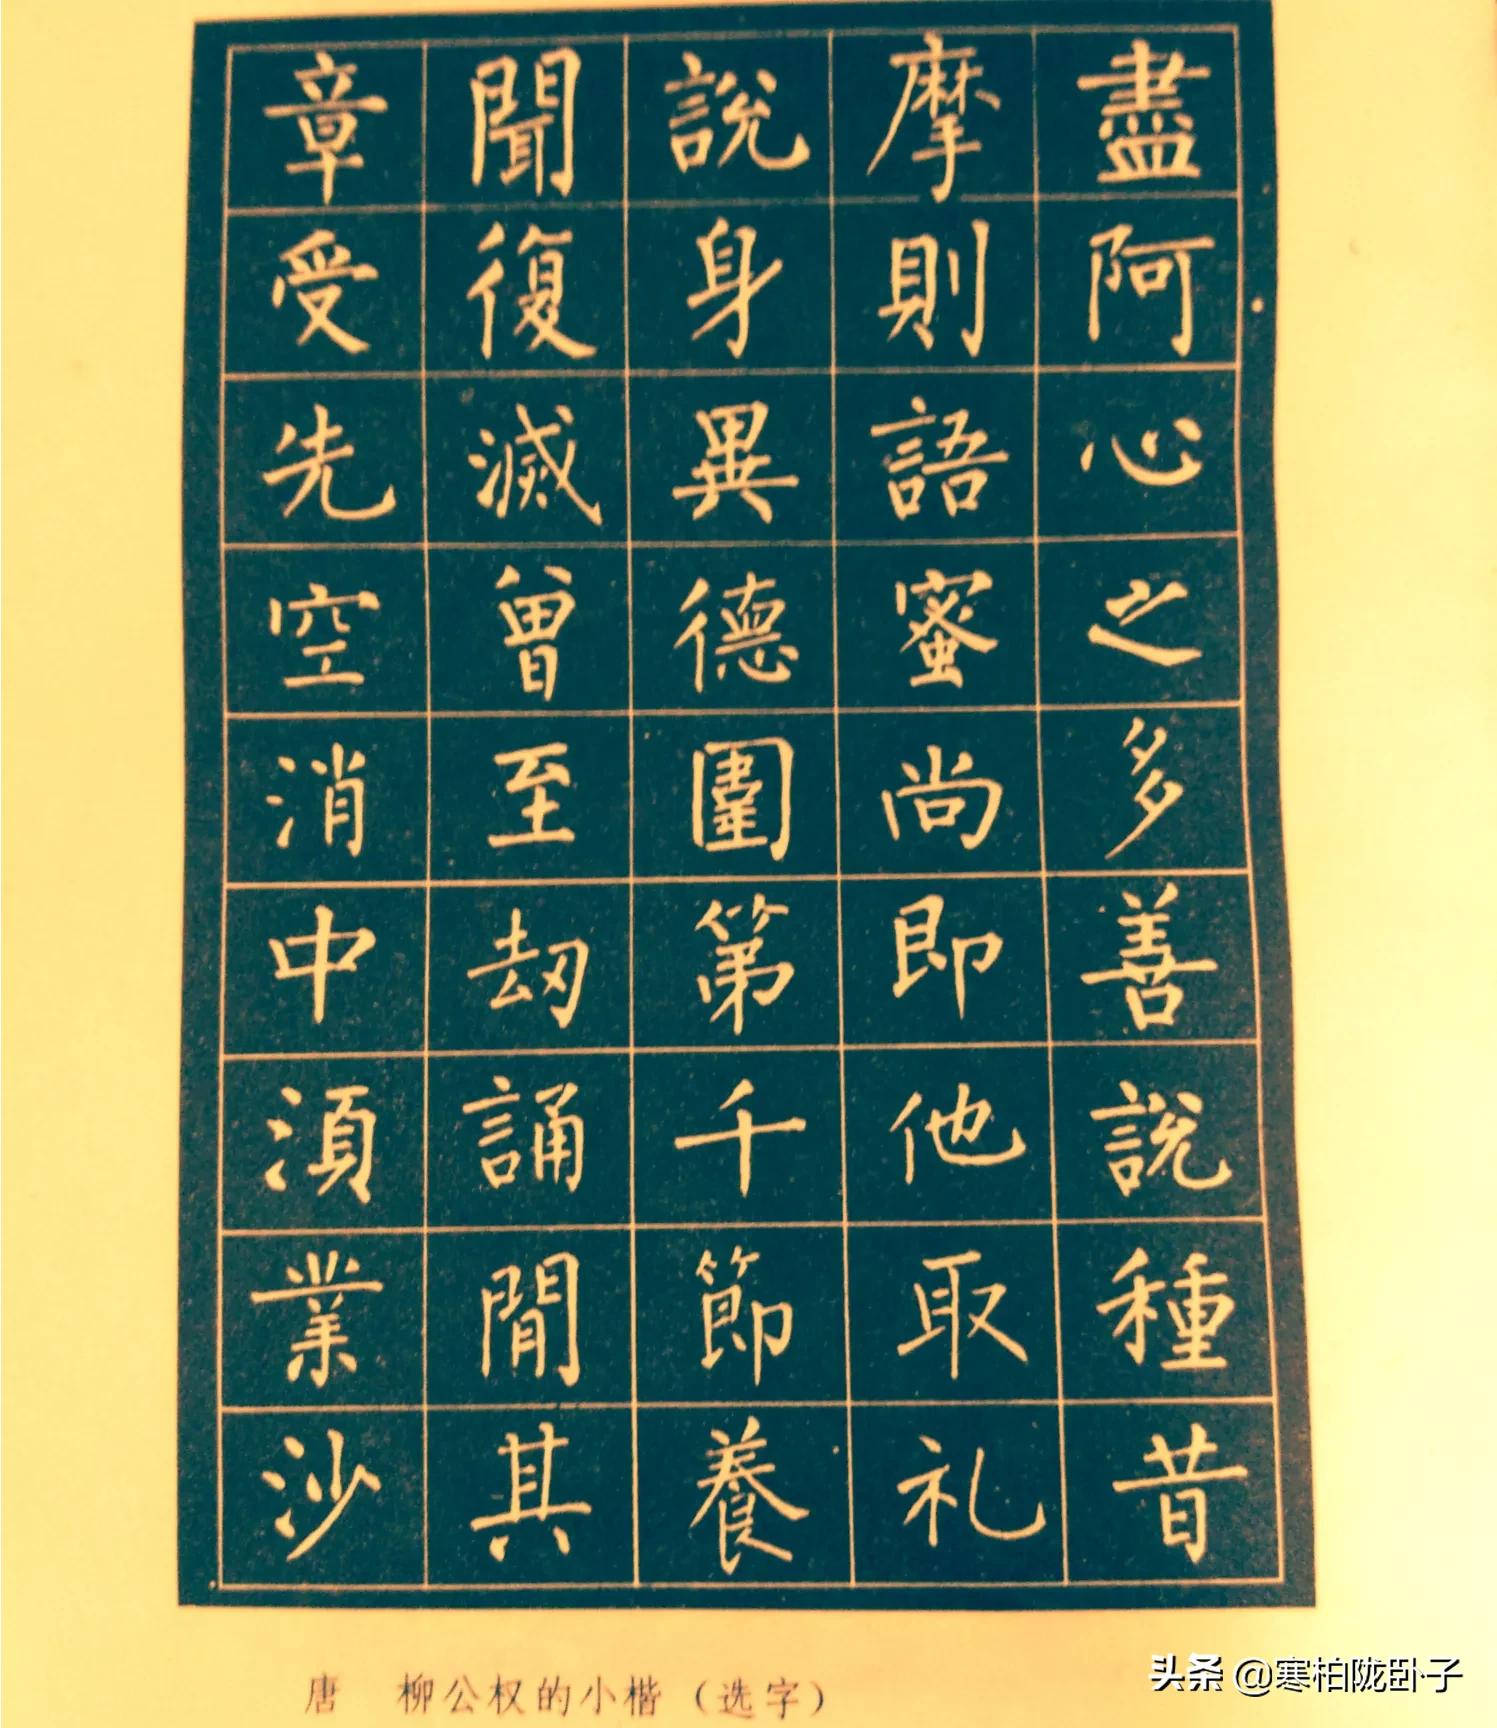 盡阿心之多善說種昔
摩則語蜜尚即他取礼
說身異德圍第千節養
聞復滅曾至劫誦閒其
章受先空消中湏業沙
唐 柳公权的小楷（选字）
头条 @寒柏陇卧子